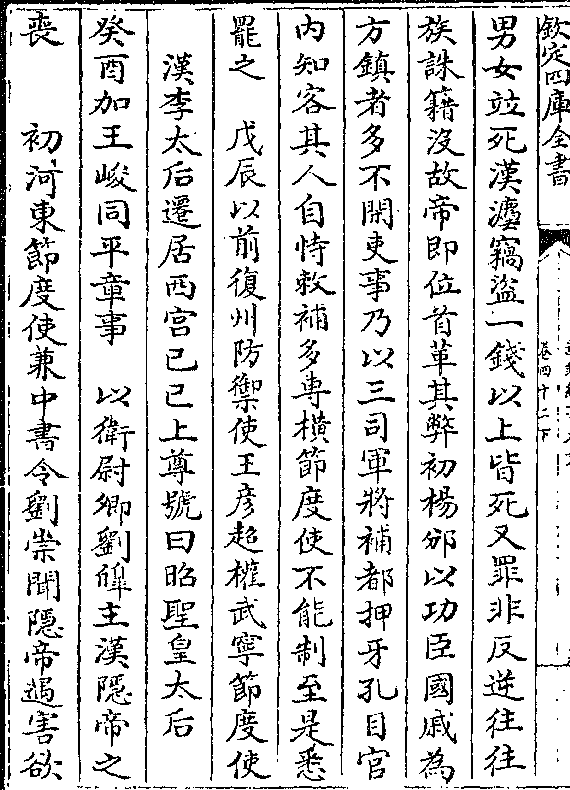 欽定四庫全書
卷四十二下
男女竝死漢灋竊盜一錢以上皆死又罪非反逆往往
族誅籍沒故帝即位首革其弊初楊邠以功臣國戚為
方鎮者多不閑吏事乃以三司軍將補都押牙孔目官
内知客其人自恃敕補多專橫節度使不能制至是悉
罷之　戊辰以前復州防禦使王彦超權武寧節度使
漢李太后遷居西宫己已上尊號曰昭聖皇太后
癸酉加王峻同平章事　以衛尉卿劉皥主漢隱帝之
喪　初河東節度使兼中書令劉崇聞隱帝遇害欲